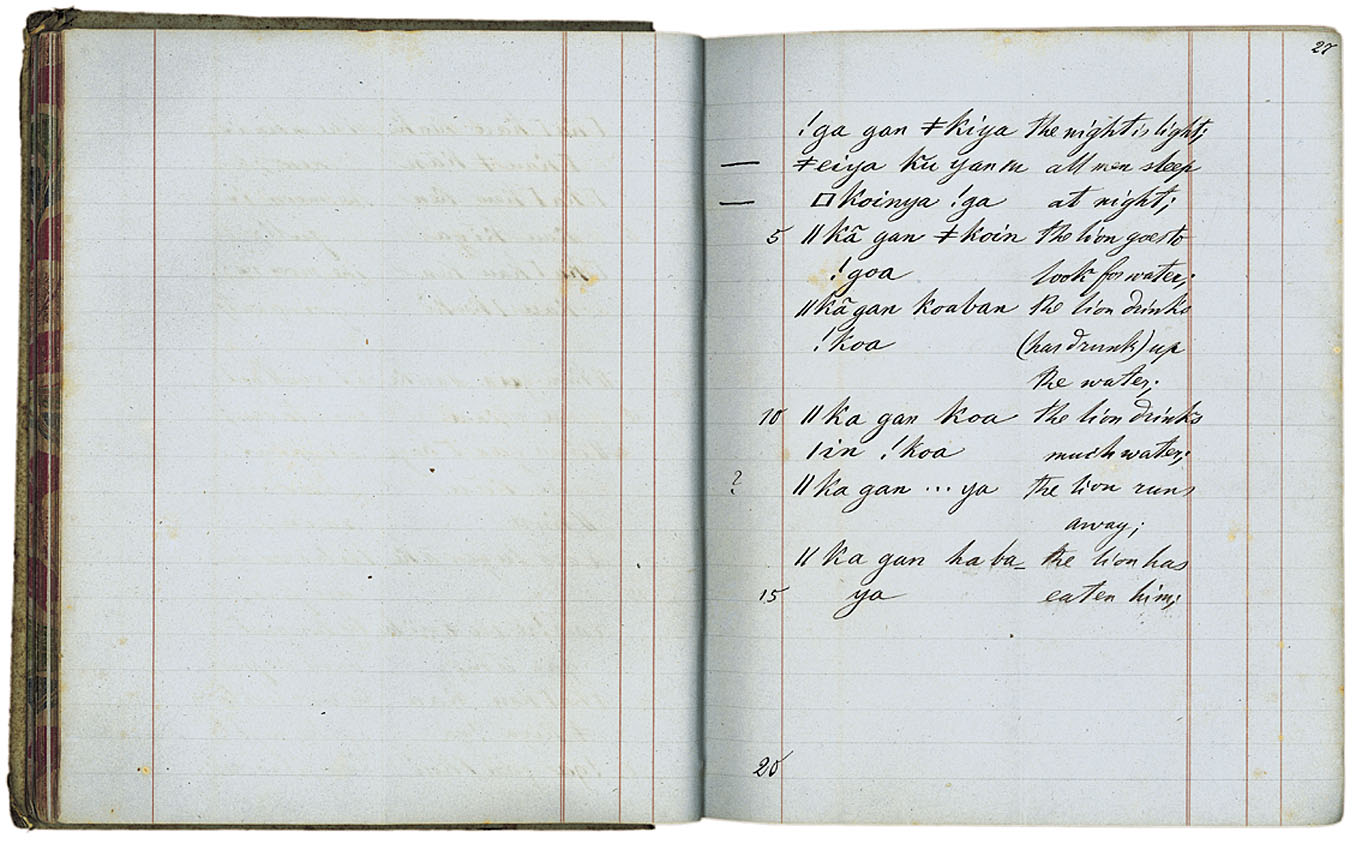 27
!ga gan ǂkiya the night is light;
— ǂeiya ku yanm all men sleep
— ▢koinya !ga at night;
5 ǁkã gan ǂkoin the lion goes to
!goa look for water;
ǁkã gan koaban the lion drinks
!koa (has drunk) up
the water;
10 ǁka gan koa the lion drinks
ǀin !koa much water;
? ǁka gan ... ya the lion runs
away;
ǁka gan haba- the lion has
15 ya eaten him;
20